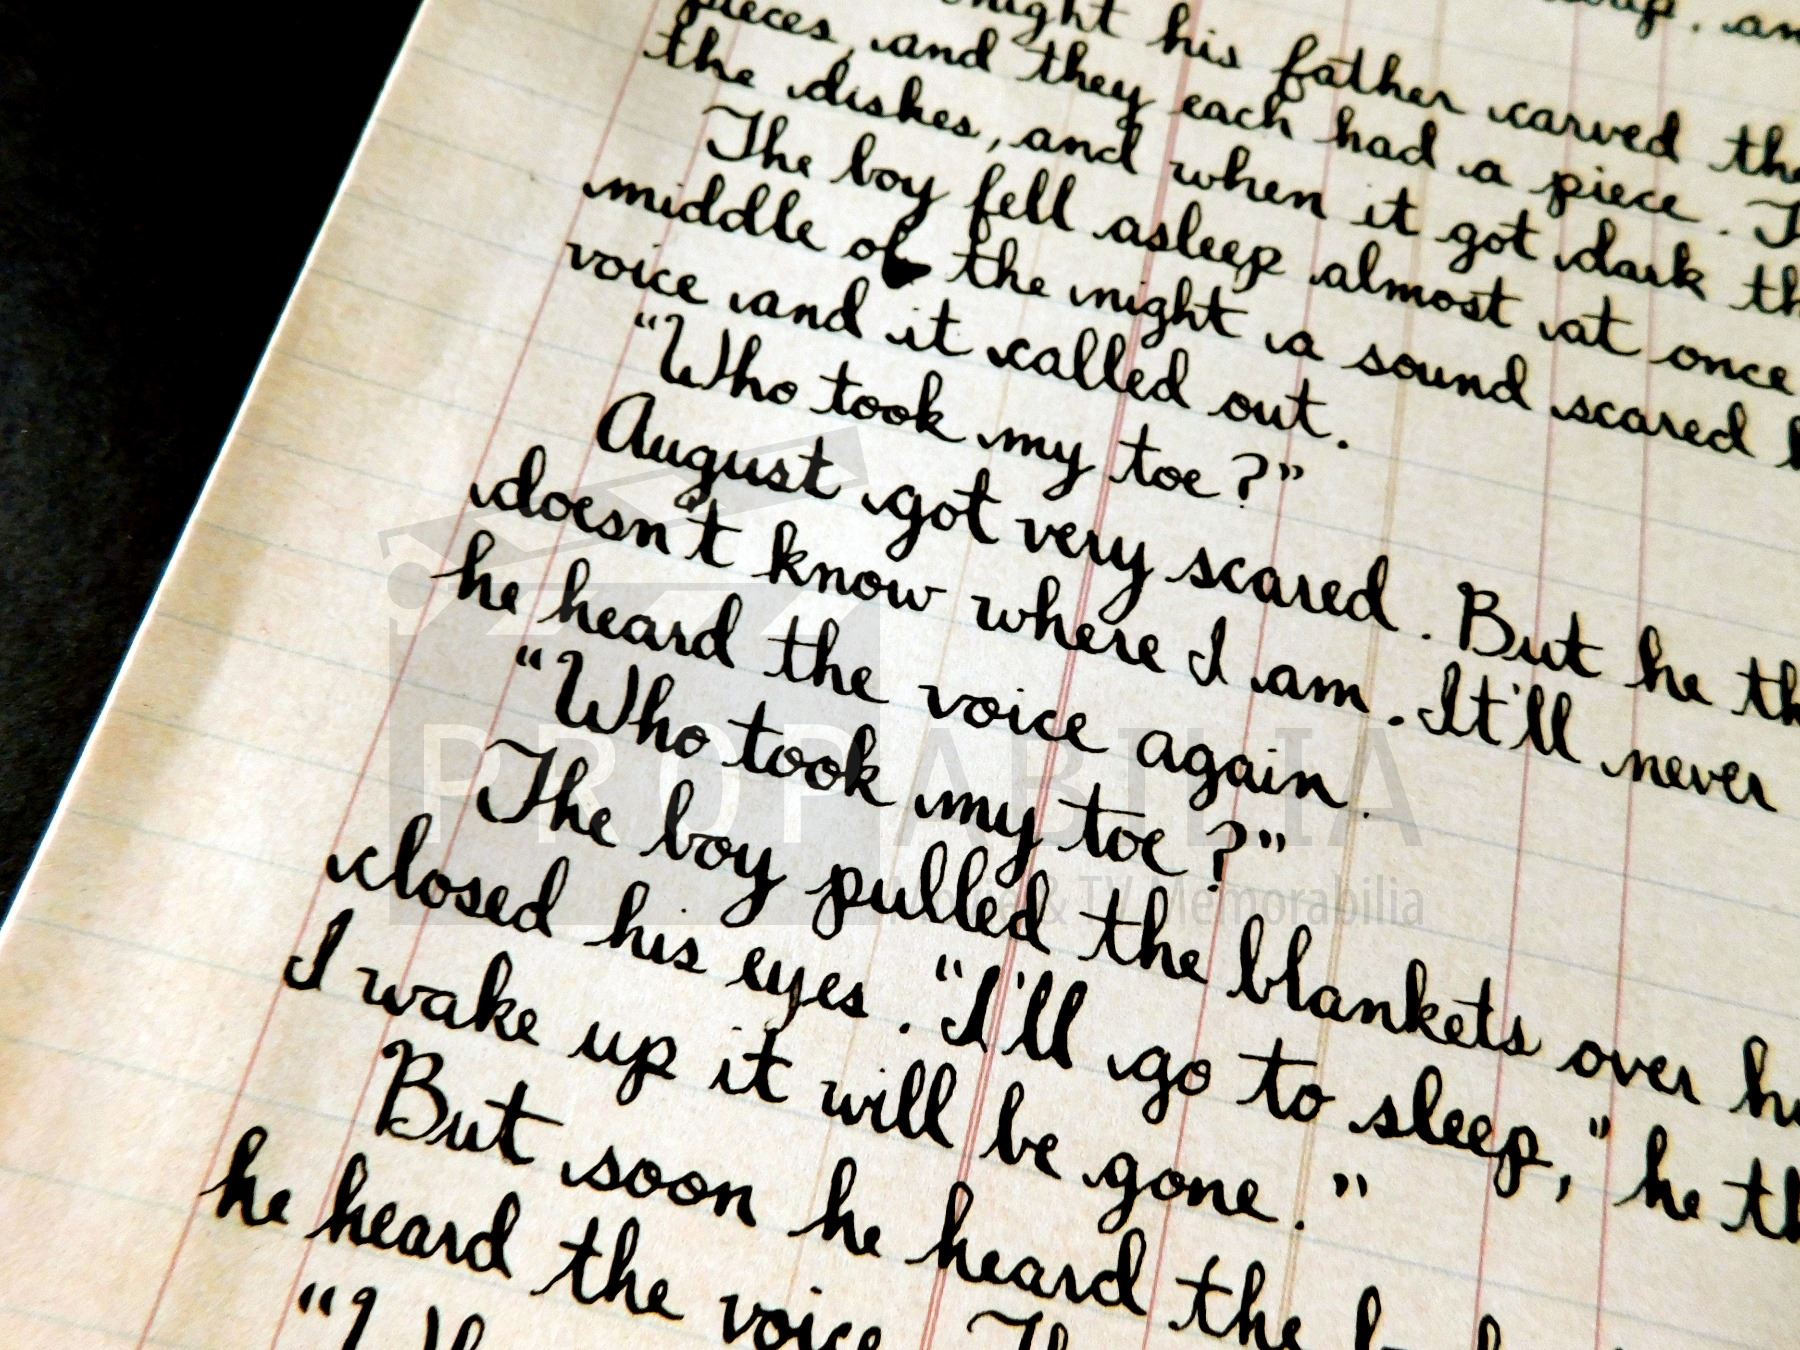 night his father carved the
pieces, and they each had a piece.
the dishes, and when it got dark
The boy fell asleep almost at once
middle of the night a sound scared
voice and it called out.
"Who took my toe?"
August got very scared. But he
doesn't know where I am. It'll never
he heard the voice again.
"Who took my toe?"
The boy pulled the blankets over
closed his eyes. "I'll go to sleep," he
I wake up it will be gone."
But soon he heard the
he heard the voice.
PROPABILIA
Movie & TV Memorabilia